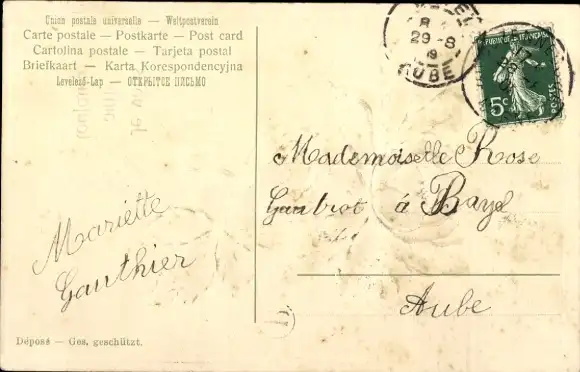 Union postale universelle — Weltpostverein
Carte postale — Postkarte — Post card
Cartolina postale — Tarjeta postal
Briefkaart — Karta Korespondencyjna
Levelező-Lap — ОТКРЫТОЕ ПИСЬМО
8
29 - 8
9
AUBE
5c
POSTES
Mademoiselle Rose
à Bayel
Aube
Mariette
Gauthier
Déposé — Ges. geschützt.